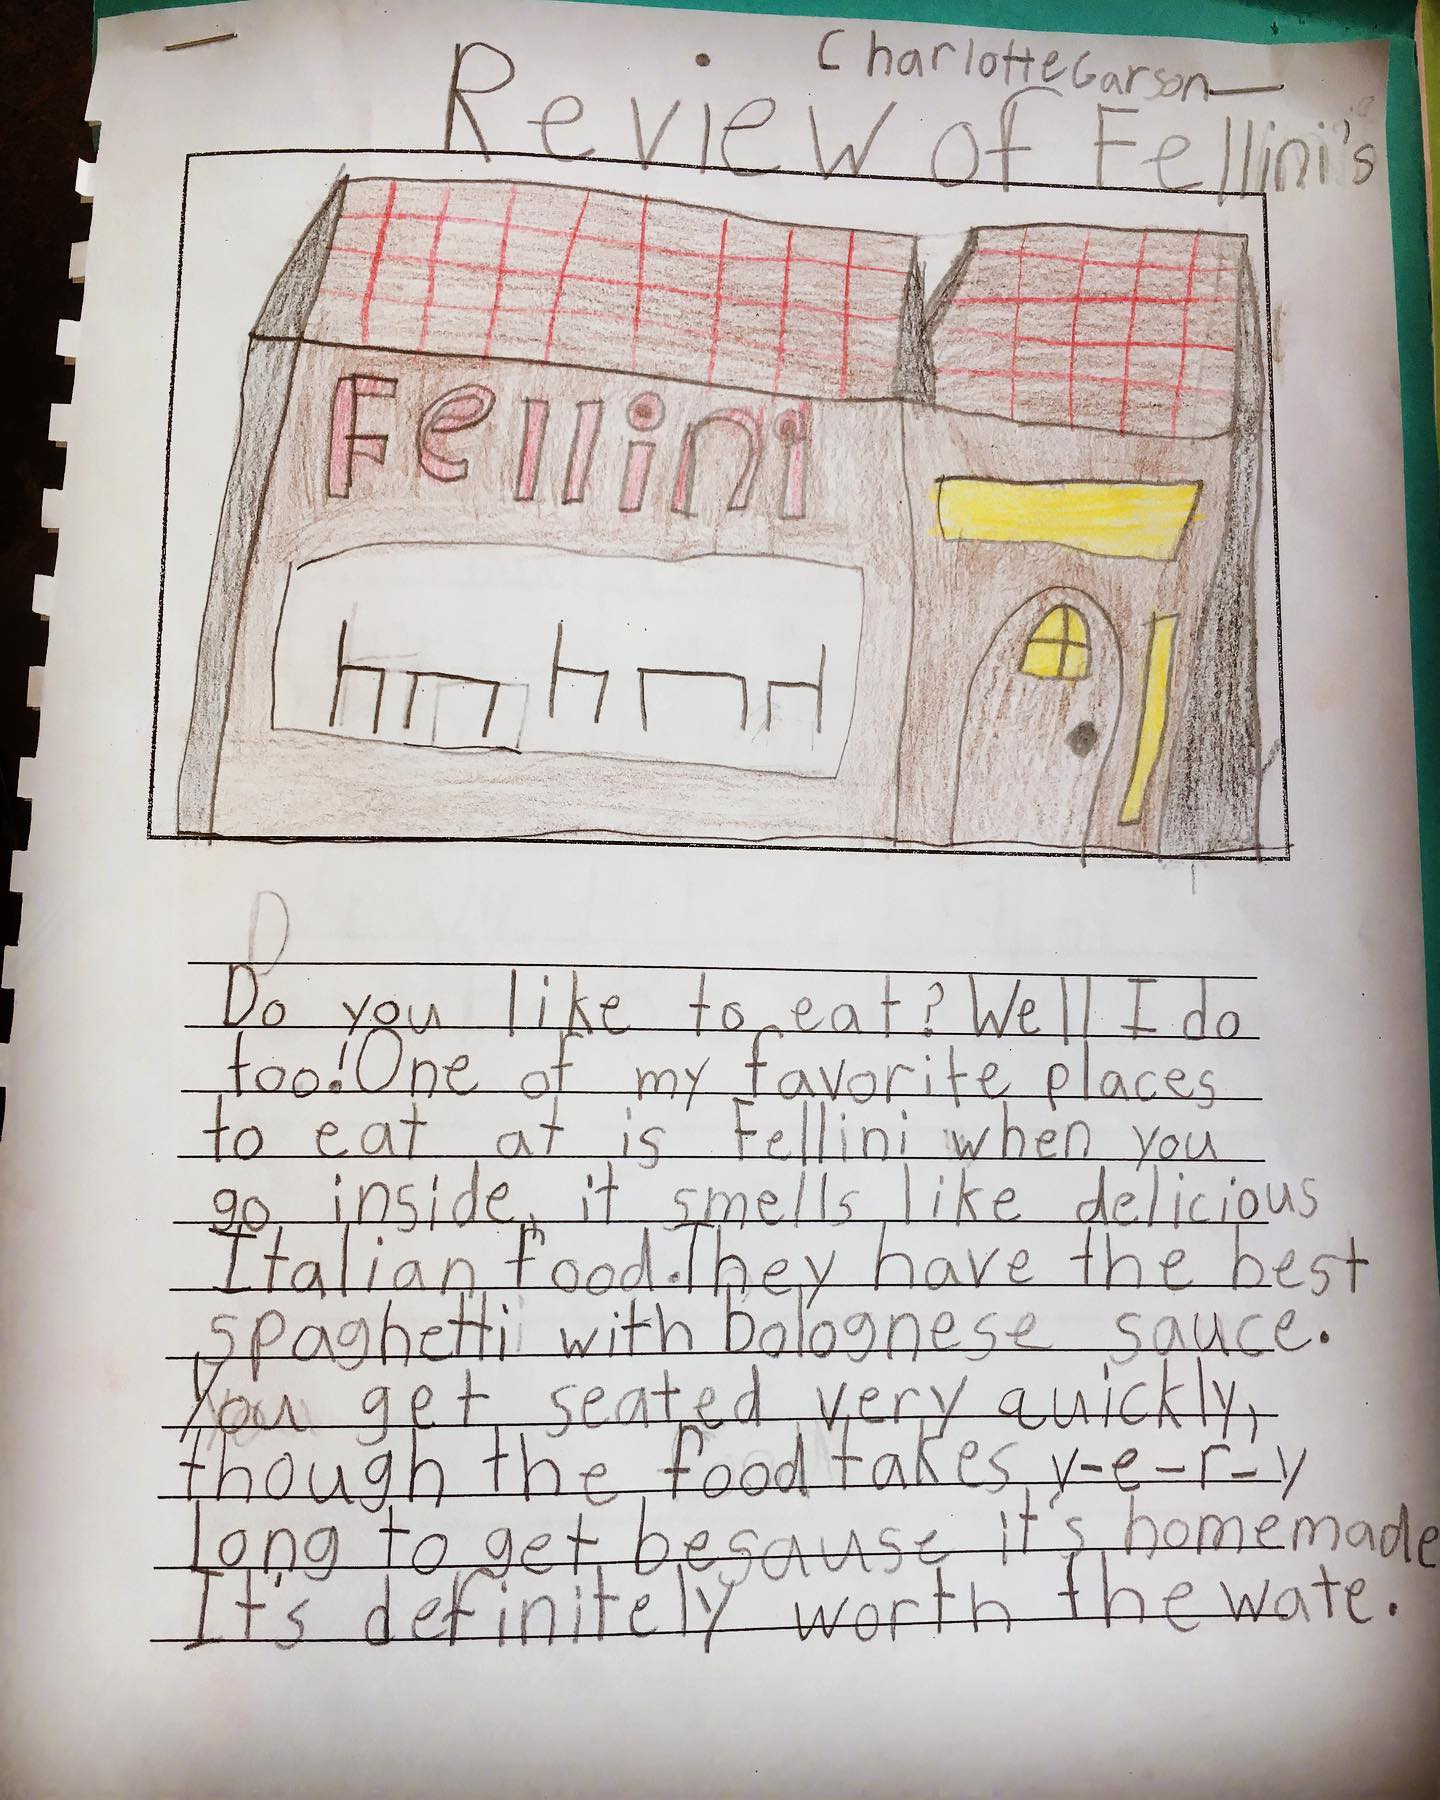 Charlotte Garson
Review of Fellini's
Fellini
D
Do you like to eat? Well I do
too! One of my favorite places
to eat at is Fellini when you
go inside, it smells like delicious
Italian food. They have the best
spaghetti with bolognese sauce.
You get seated very quickly,
though the food takes v-e-r-y
long to get besause it's homemade
It's definitely worth the wate.